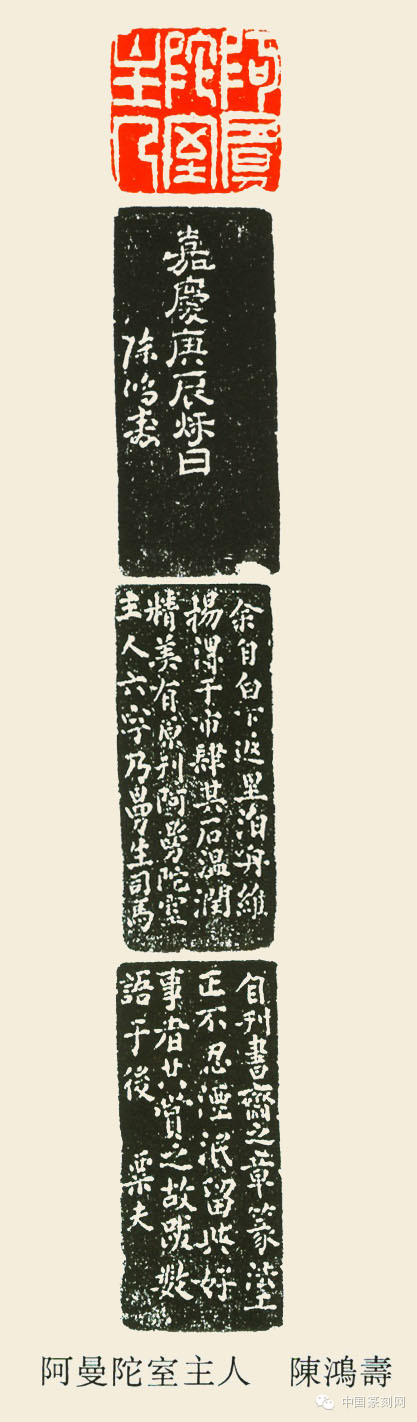 阿曼
陀室
主人
嘉慶庚辰秌日
陳鴻壽
余自白下返里泊舟維
揚得于市肆其石温潤
精美有原刊阿曼陀室
主人六字乃曼生司馬
自刊書齋之章篆法
正不忍湮泯留此好
事者共賞之故跋數
語于後 栗夫
阿曼陀室主人 陳鴻壽
中国篆刻网